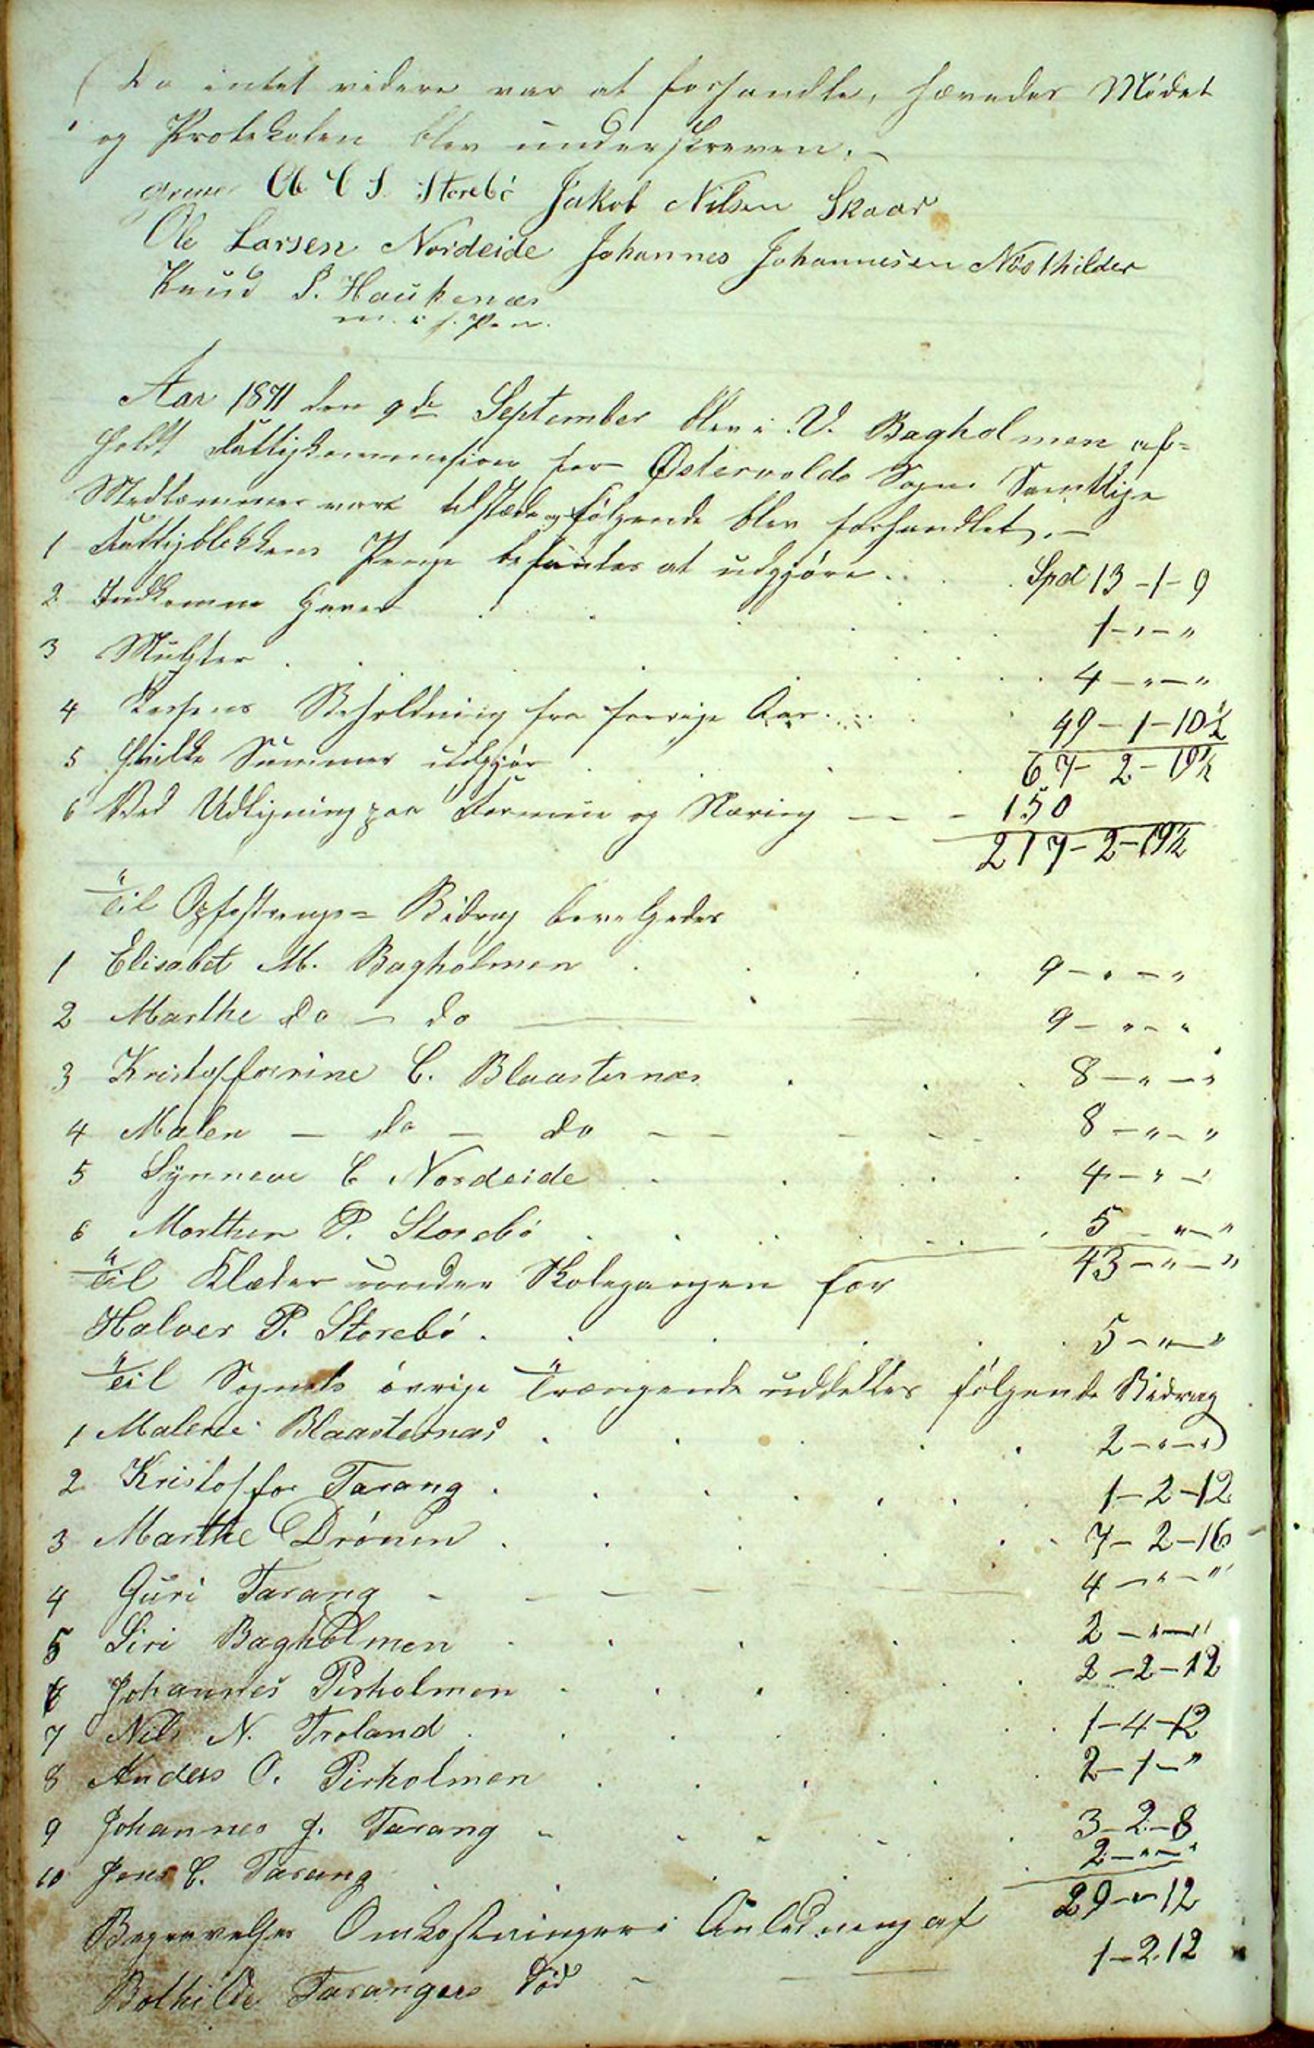 Da intet videre var at forhandle, hævedes Mødet
og Protokolen blev underskreven. –
Ole C S. Storebø Jakob Nilsen Skaar
Ole Larsen Nordeide Johannes Johannesen Nøsthilder
Knud S. Haukenæs
m. i f. Pen.
Aar 1871 den 9de September blev i V. Bagholmen af=
holdt Fattigkommission for Østervolds Sogn Samtlige
Medlemmer vare tilstæde og følgende blev forhandlet. –
1 Fattigblokkens Penge befandtes at udgjøre . . Spd 13 – 1 – 9
2 Indkomne Gaver 1 – " – "
3 Mulkter 4 – " – "
4 Kassens Beholdning fra forrige Aar 49 – 1 – 10½
5 Hvilke Summer udgjør 67 – 2 – 19½
6 Ved Udligning paa Formue og Næring — 150
217 – 2 – 19½
Til Opfostrings= Bidrag bevilgedes
1 Elisabet M. Bagholmen 9 – " – "
2 Marthe do – do 9 – " – "
3 Kristofforine C. Blaasternæs 8 – " – "
4 Malen – do – do 8 – " – "
5 Synneve C Nordeide 4 – " – "
6 Morthen P. Storebø 5 – " – "
43 – " – "
Til Klæder under Skolegangen for
Halver P. Storebø 5 – " – "
Til Sognets øvrige Trængende uddeltes følgende Bidrag
1 Malene Blaasternæs 2 – " – "
2 Kristoffor Tarang 1 – 2 – 12
3 Marthe Drønen 7 – 2 – 16
4 Guri Tarang 4 – " – "
5 Siri Bagholmen 2 – " – "
6 Johannes Pirholmen 2 – 2 – 12
7 Nils N. Troland 1 – 4 – 12
8 Anders O. Pirholmen 2 – 1 – "
9 Johannes J. Tarang 3 – 2 – 8
10 Jens C. Tarang 2 – " – "
29 – " – 12
Begravelses Omkostninger i Anledning af
Bothilde Tarangers Død 1 – 2 12